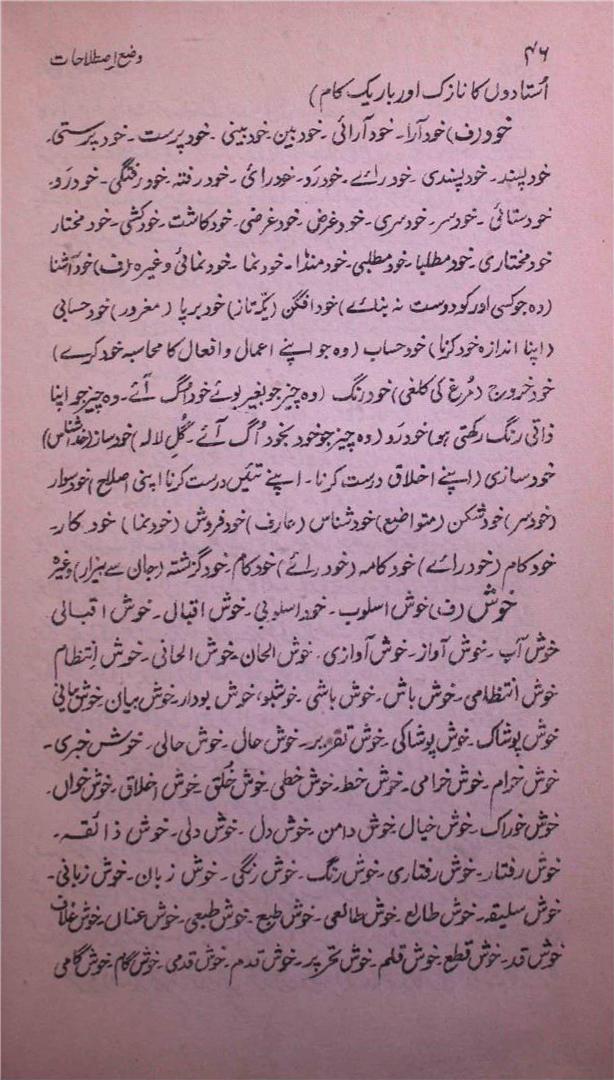 ۴۶ وضع اصطلاحات
اُستادوں کا نازک اور باریک کام)
خود (ف) خود آرا۔ خود آرائی ۔ خود بین ۔ خود بینی ۔ خود پرست ۔ خود پرستی۔
خود پسند۔ خود پسندی ۔ خود رائے ۔ خود رَو۔ خود رائی ۔ خود رفتہ ۔ خود رفتگی ۔ خود رَو۔
خود ستائی ۔ خود سر۔ خود سری۔ خود غرض۔ خود غرضی۔ خود کاشت ۔ خود کشی ۔ خود مختار
خود مختاری ۔ خود مطلبا۔ خود مطلبی۔ خود منڈا۔ خود نما ۔ خود نمائی وغیرہ (ف) خود آشنا
(وہ جو کسی اور کو دوست نہ بنائے) خود افگن (یکّہ تاز) خود برپا (مغرور) خود حسابی
(اپنا اندازہ خود کرنا) خود حساب (وہ جو اپنے اعمال و افعال کا محاسبہ خود کرے)
خود خروج (مرغ کی کلغی) خود رنگ (وہ چیز جو بغیر بوئے خود اُگ آئے۔ وہ چیز جو اپنا
ذاتی رنگ رکھتی ہو) خود رَو (وہ چیز جو خود بخود اُگ آئے ۔ گُلِ لالہ) خود ساز (خدا شناس)
خود سازی (اپنے اخلاق درست کرنا ۔ اپنے تئیں درست کرنا اپنی اصلاح) خود سوار
(خود سر) خود شکن (متواضع) خود شناس (عارف) خود فروش (خود نما) خود کار۔
خود کام (خود رائے) خود کامہ (خود رائے) خود کام۔ خود گزشتہ (جان سے بیزار) وغیرہ
خوش (ف) خوش اسلوب ۔ خود اسلوبی ۔ خوش اقبال ۔ خوش اقبالی
خوش آپ ۔ خوش آواز ۔ خوش آوازی ۔ خوش الحان۔ خوش الحانی ۔ خوش انتظام
خوش انتظامی ۔ خوش باش ۔ خوش باشی ۔ خوشبو، خوش بودار۔ خوش بیان۔ خوش بیانی
خوش پوشاک ۔ خوش پوشاکی ۔ خوش تقریر۔ خوش حال ۔ خوش حالی ۔ خوش خبری ۔
خوش خرام ۔ خوش خرامی ۔ خوش خط۔ خوش خطی ۔ خوش خُلق ۔ خوش اخلاق ۔ خوش خواں۔
خوش خوراک ۔ خوش خیال۔ خوش دامن ۔ خوش دل ۔ خوش دلی ۔ خوش ذائقہ ۔
خوش رفتار۔ خوش رفتاری ۔ خوش رنگ ۔ خوش رنگی ۔ خوش زبان ۔ خوش زبانی ۔
خوش سلیقہ۔ خوش طالع ۔ خوش طالعی ۔ خوش طبع ۔ خوش طبعی ۔ خوش عناں ۔ خوش غلاف
خوش قد ۔ خوش قطع ۔ خوش قلم ۔ خوش تحریر ۔ خوش قدم ۔ خوش قدمی ۔ خوش گام ۔ خوش گامی